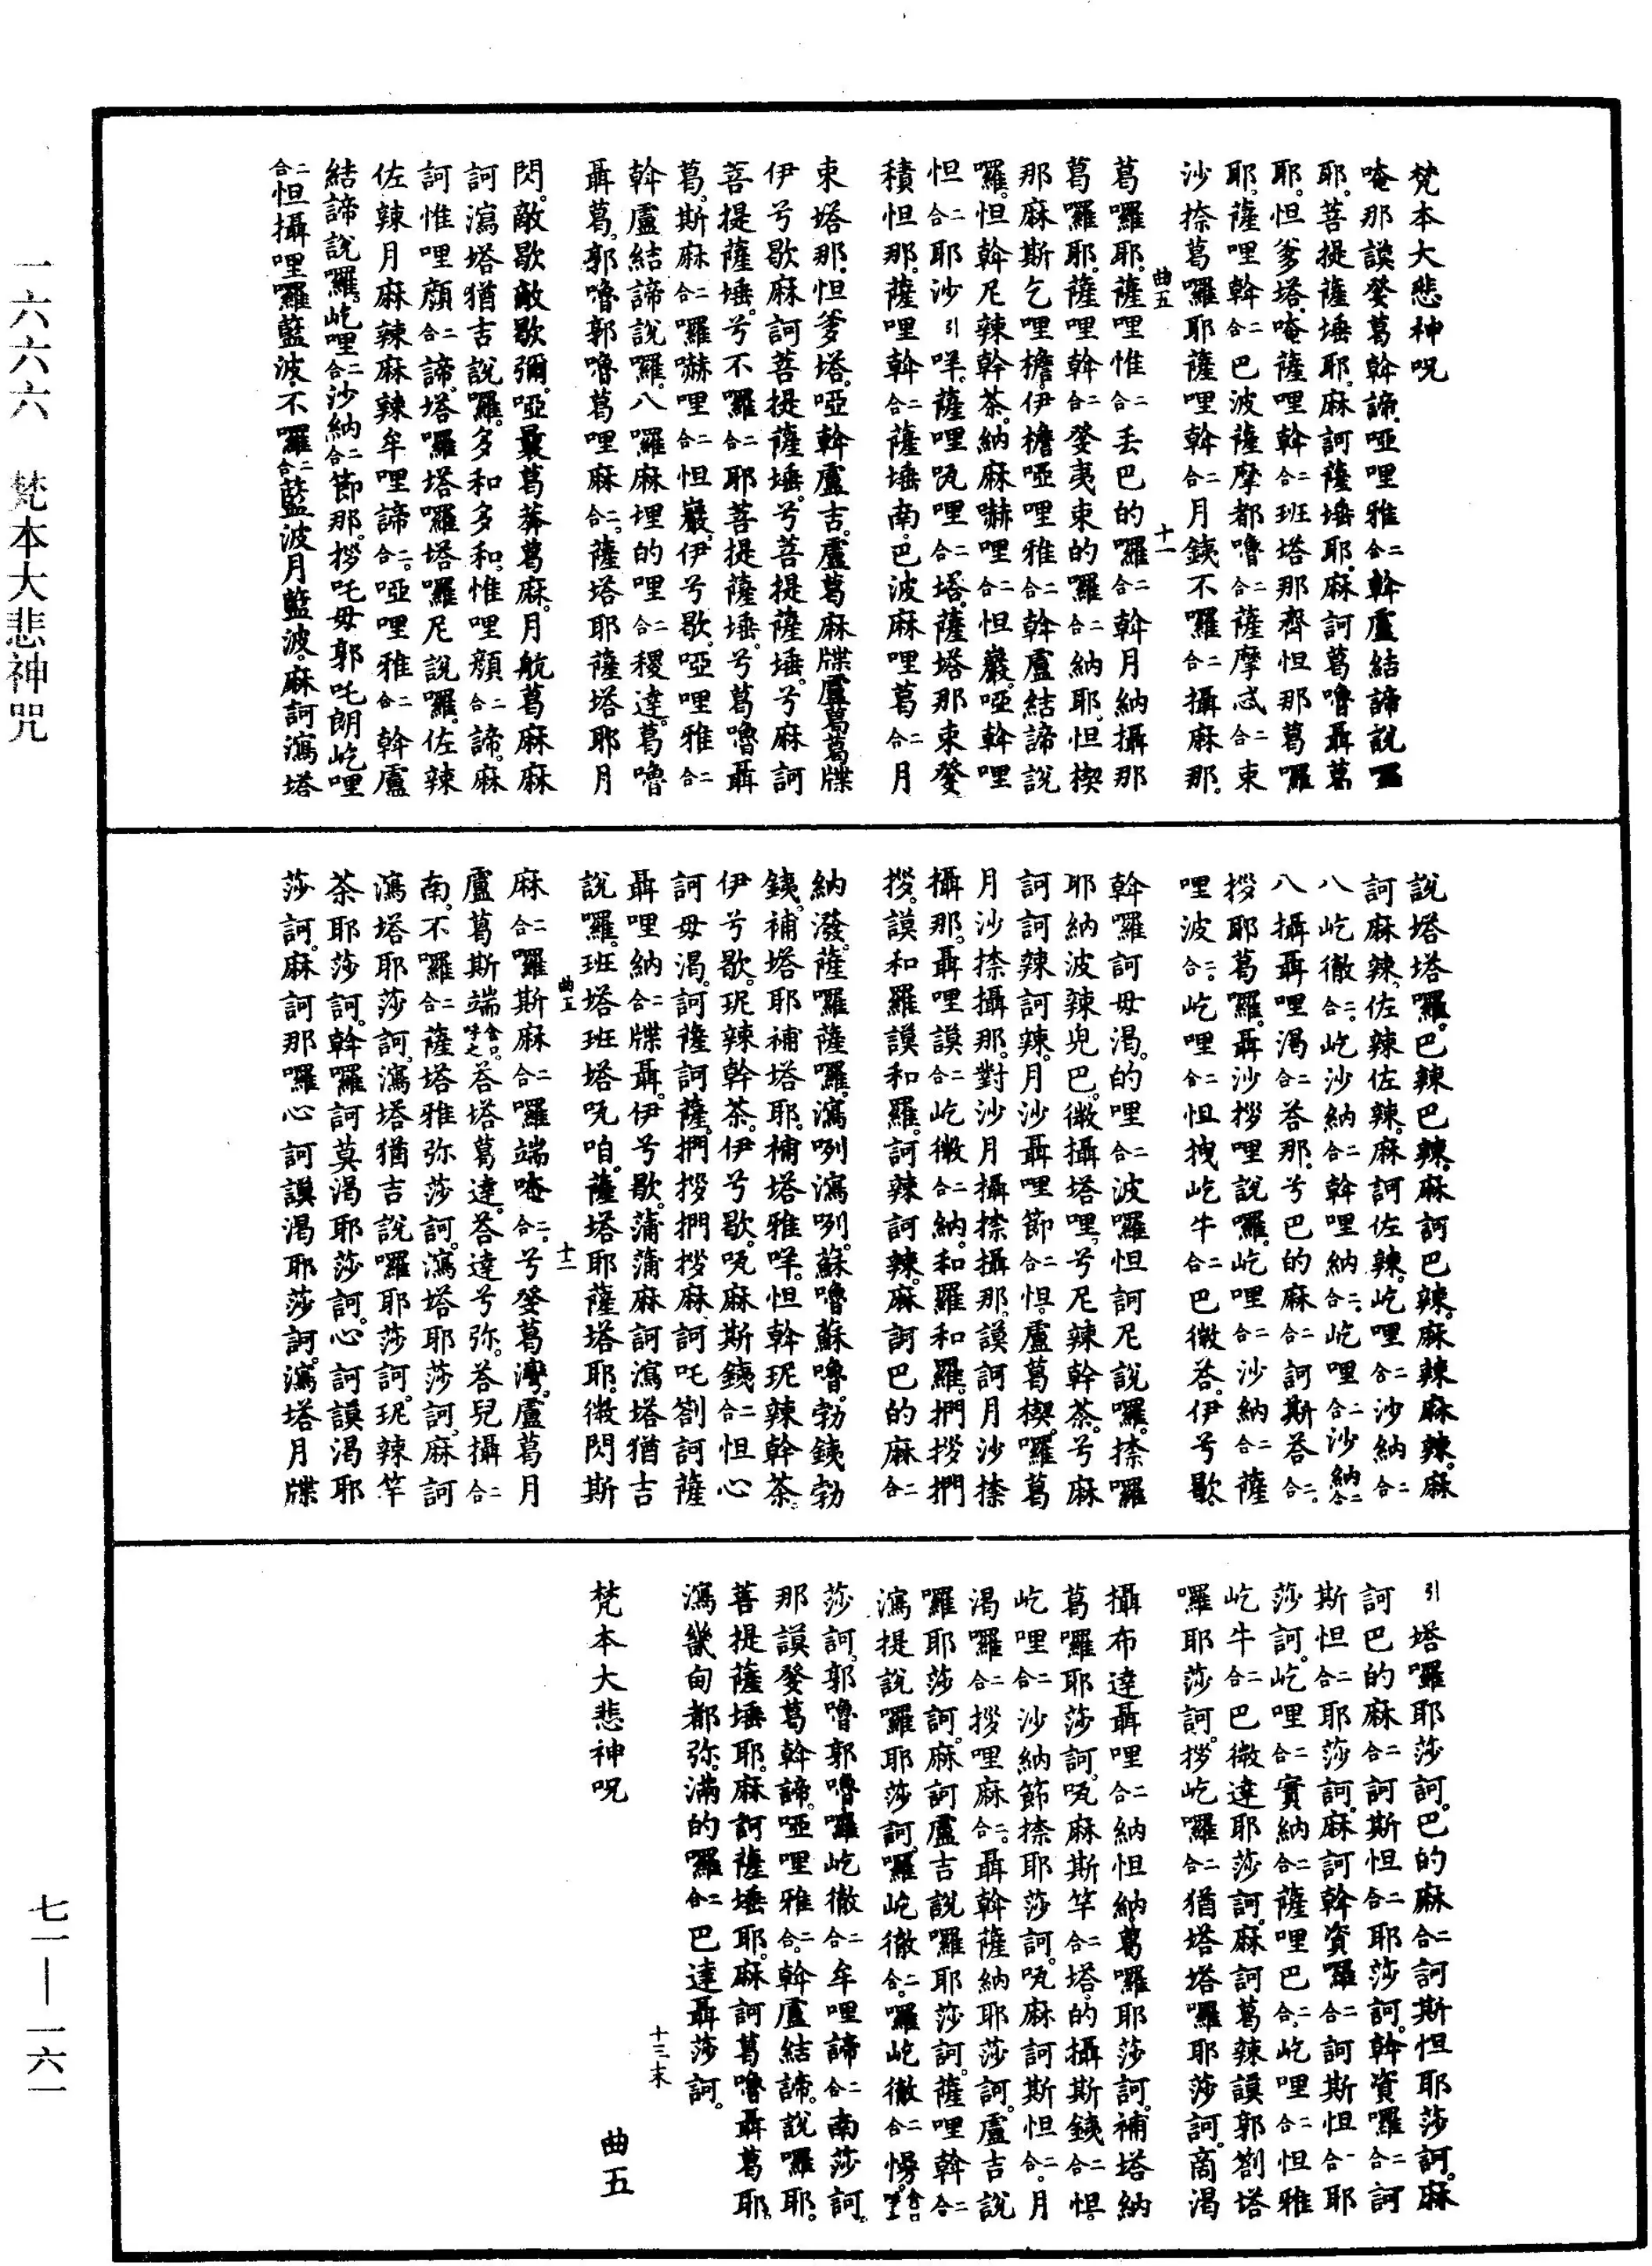 梵本大悲神呪
唵那謨癹葛斡諦.啞哩雅二合斡盧結諦說囉
耶.菩提薩埵耶.麻訶薩埵耶.麻訶葛嚕聶葛
耶.怛爹塔.唵薩哩斡二合班塔那齊怛那葛囉
耶.薩哩斡二合巴波薩摩都嚕二合薩摩忒二合束
沙捺葛囉耶薩哩斡二合月銕不囉二合攝麻那.
葛囉耶.薩哩惟二合丢巴的囉二合斡月納攝那
葛囉耶.薩哩斡二合癹夷束的囉二合納耶.怛楔
那麻斯乞哩檐.伊檐啞哩雅二合斡盧結諦說
囉.怛斡尼辣斡茶.納麻嚇哩二合怛巖.啞斡哩
怛二合耶沙引咩.薩哩㕹哩二合塔.薩塔那束癹
積怛那.薩哩斡二合薩埵南.巴波麻哩葛二合月
束塔那.怛爹塔.啞斡盧吉.盧葛麻牒盧葛葛牒
伊兮歇麻訶菩提薩埵.兮菩提薩埵.兮麻訶
菩提薩埵.兮不囉二合耶菩提薩埵.兮葛嚕聶
葛.斯麻二合囉嚇哩二合怛巖.伊兮歇.啞哩雅二合
斡盧結諦說囉.八囉麻埋的哩二合稷達.葛嚕
聶葛.郭嚕郭嚕葛哩麻二合.薩塔耶薩塔耶月
閃.敵歇敵歇彌.啞㝡葛莽葛麻.月航葛麻麻
訶瀉塔猶吉說囉.多和多和.惟哩顔二合諦.麻
訶惟哩顔二合諦.塔囉塔囉塔囉尼說囉.佐辣
佐辣月麻辣麻辣牟哩諦二合.啞哩雅二合斡盧
結諦說囉.屹哩二合沙納二合節那.拶吒毋郭吒朗屹哩
二合怛攝哩囉藍波.不囉二合藍波月藍波.麻訶瀉塔
說塔塔囉.巴辣巴辣.麻訶巴辣.麻辣麻辣.麻
訶麻辣.佐辣佐辣.麻訶佐辣.屹哩二合沙納二合
八屹徹二合.屹沙納二合斡哩納二合.屹哩二合沙納二合
八攝聶哩渴二合荅那.兮巴的麻二合訶斯荅二合.
拶耶葛囉.聶沙拶哩說囉.屹哩二合沙納二合薩
哩波二合.屹哩二合怛拽屹牛二合巴微荅.伊兮歇.
斡囉訶毋渴.的哩二合波囉怛訶尼說囉.捺囉
耶納波辣兜巴.微攝塔哩.兮尼辣斡茶.兮麻
訶訶辣訶辣.月沙聶哩節二合怛.盧葛楔.囉葛
月沙捺攝那.對沙月攝捺攝那.謨訶月沙捺
攝那.聶哩謨二合屹微二合納.和羅和羅.捫拶捫
拶.謨和羅謨和羅.訶辣訶辣.麻訶巴的麻二合
納潑.薩囉薩囉.瀉咧瀉咧.蘇嚕蘇嚕.勃銕勃
銕.補塔耶補塔耶.補塔雅咩.怛斡玭辣斡茶.
伊兮歇.玭辣斡茶.伊兮歇.㕹麻斯銕二合怛心
訶毋渴.訶薩訶薩.捫拶捫拶麻訶吒劄訶薩
聶哩納二合牒聶.伊兮歇.蒲蒲麻訶瀉塔猶吉
說囉.班塔班塔㕹咱.薩塔耶薩塔耶.微閃斯
麻二合囉斯麻二合囉端唵二合.兮癹葛灣.盧葛月
盧葛斯端荅塔葛達.荅達兮弥.荅兒攝二合
南.不囉二合薩塔雅弥莎訶.瀉塔耶莎訶.麻訶
瀉塔耶莎訶.瀉塔猶吉說囉耶莎訶.玭辣竿
茶耶莎訶.斡囉訶莫渴耶莎訶.心訶謨渴耶
莎訶.麻訶那囉心訶謨渴耶莎訶.瀉塔月牒
引塔囉耶莎訶.巴的麻二合訶斯怛耶莎訶.麻
訶巴的麻二合訶斯怛二合耶莎訶.斡資囉二合訶
斯怛二合耶莎訶.麻訶斡資囉二合訶斯怛二合耶
莎訶.屹哩二合實納二合薩哩巴二合.屹哩二合怛雅
屹牛二合巴微達耶莎訶.麻訶葛辣謨郭劄塔
囉耶莎訶.拶屹囉二合猶塔塔囉耶莎訶.商渴
攝布達聶哩二合納怛納.葛囉耶莎訶.補塔納
葛囉耶莎訶.㕹麻斯竿二合塔.的攝斯銕二合怛.
屹哩二合沙納節捺耶莎訶.㕹麻訶斯怛二合.月
渴囉二合拶哩麻二合.聶斡薩納耶莎訶.盧吉說
囉耶莎訶.麻訶盧吉說囉耶莎訶.薩哩斡二合
瀉提說囉耶莎訶.囉屹徹二合.囉屹徹二合愣.
莎訶.郭嚕郭嚕囉屹徹二合牟哩諦二合南莎訶.
那謨癹葛斡諦.啞哩雅二合.斡盧結諦.說囉耶.
菩提薩埵耶.麻訶薩埵耶.麻訶葛嚕聶葛耶.
瀉𡃤甸都弥.滿的囉二合巴達聶莎訶.
梵本大悲神呪
曲五
十一
曲五
十二
十三末
曲五
一六六六 梵本大悲神咒
七一—一六一